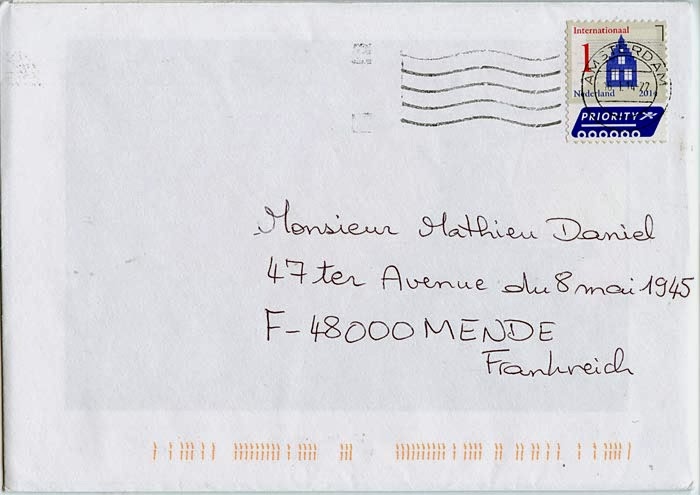 Internationaal
1
AMSTERDAM
Nederland 2014
PRIORITY
Monsieur Mathieu Daniel
47 ter Avenue du 8 mai 1945
F-48000 MENDE
Frankreich